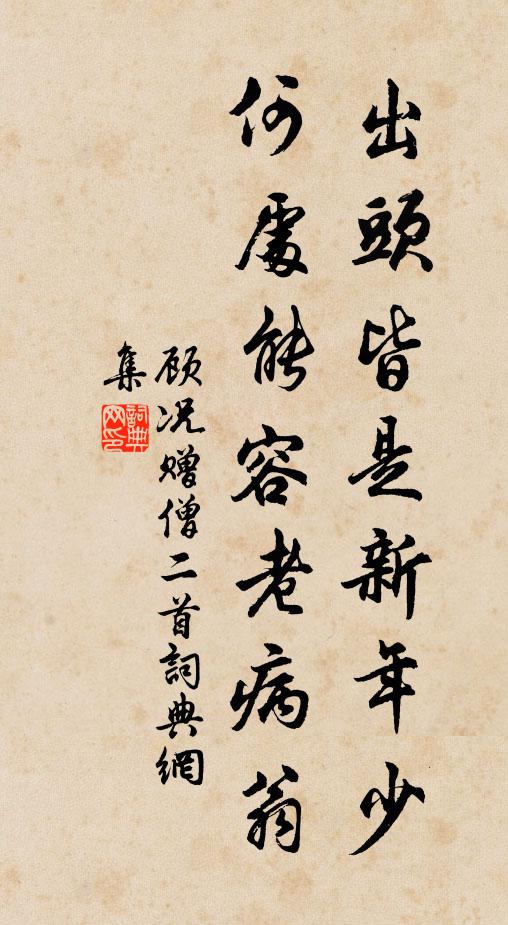 出頭皆是新年少
何處能容老病翁
顾况赠僧二首詞典網
集
詞典网印